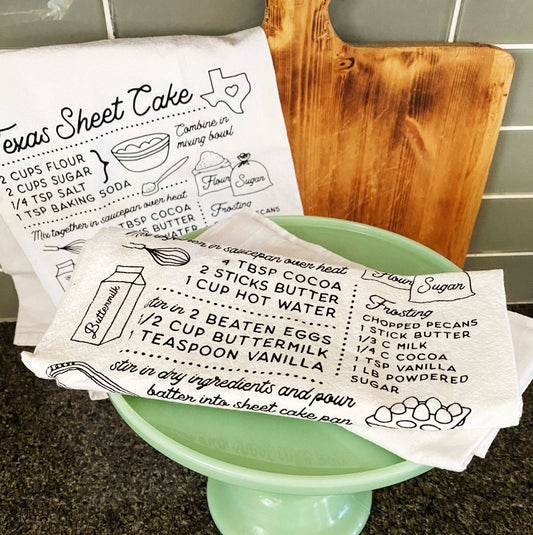 Texas Sheet Cake
Combine in
mixing bowl
2 CUPS FLOUR
2 CUPS SUGAR
1/4 TSP SALT
1 TSP BAKING SODA
Flour
Sugar
Mix together in saucepan over heat
TBSP COCOA
BUTTER
WATER
Frosting
PECANS
in saucepan over heat
4 TBSP COCOA
2 STICKS BUTTER
1 CUP HOT WATER
Buttermilk
stir in 2 BEATEN EGGS
1/2 CUP BUTTERMILK
1 TEASPOON VANILLA
stir in dry ingredients and pour
batter into sheet cake pan
Flour
Sugar
Frosting
CHOPPED PECANS
1 STICK BUTTER
1/3 C MILK
1/4 C COCOA
1 TSP VANILLA
1 LB POWDERED
SUGAR